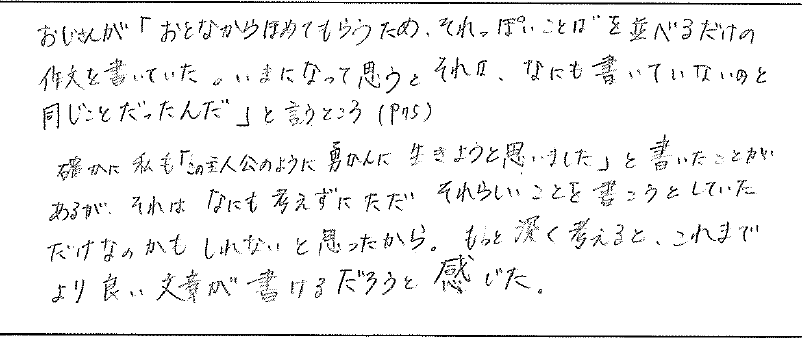 おじさんが「おとなからほめてもらうため、それっぽいことばを並べるだけの
作文を書いていた。いまになって思うとそれは、なにも書いていないのと
同じことだったんだ」と言うところ(P75)
確かに私も「この主人公のように勇かんに生きようと思いました」と書いたことが
あるが、それはなにも考えずにただそれらしいことを書こうとしていた
だけなのかもしれないと思ったから。もっと深く考えると、これまで
より良い文章が書けるだろうと感じた。